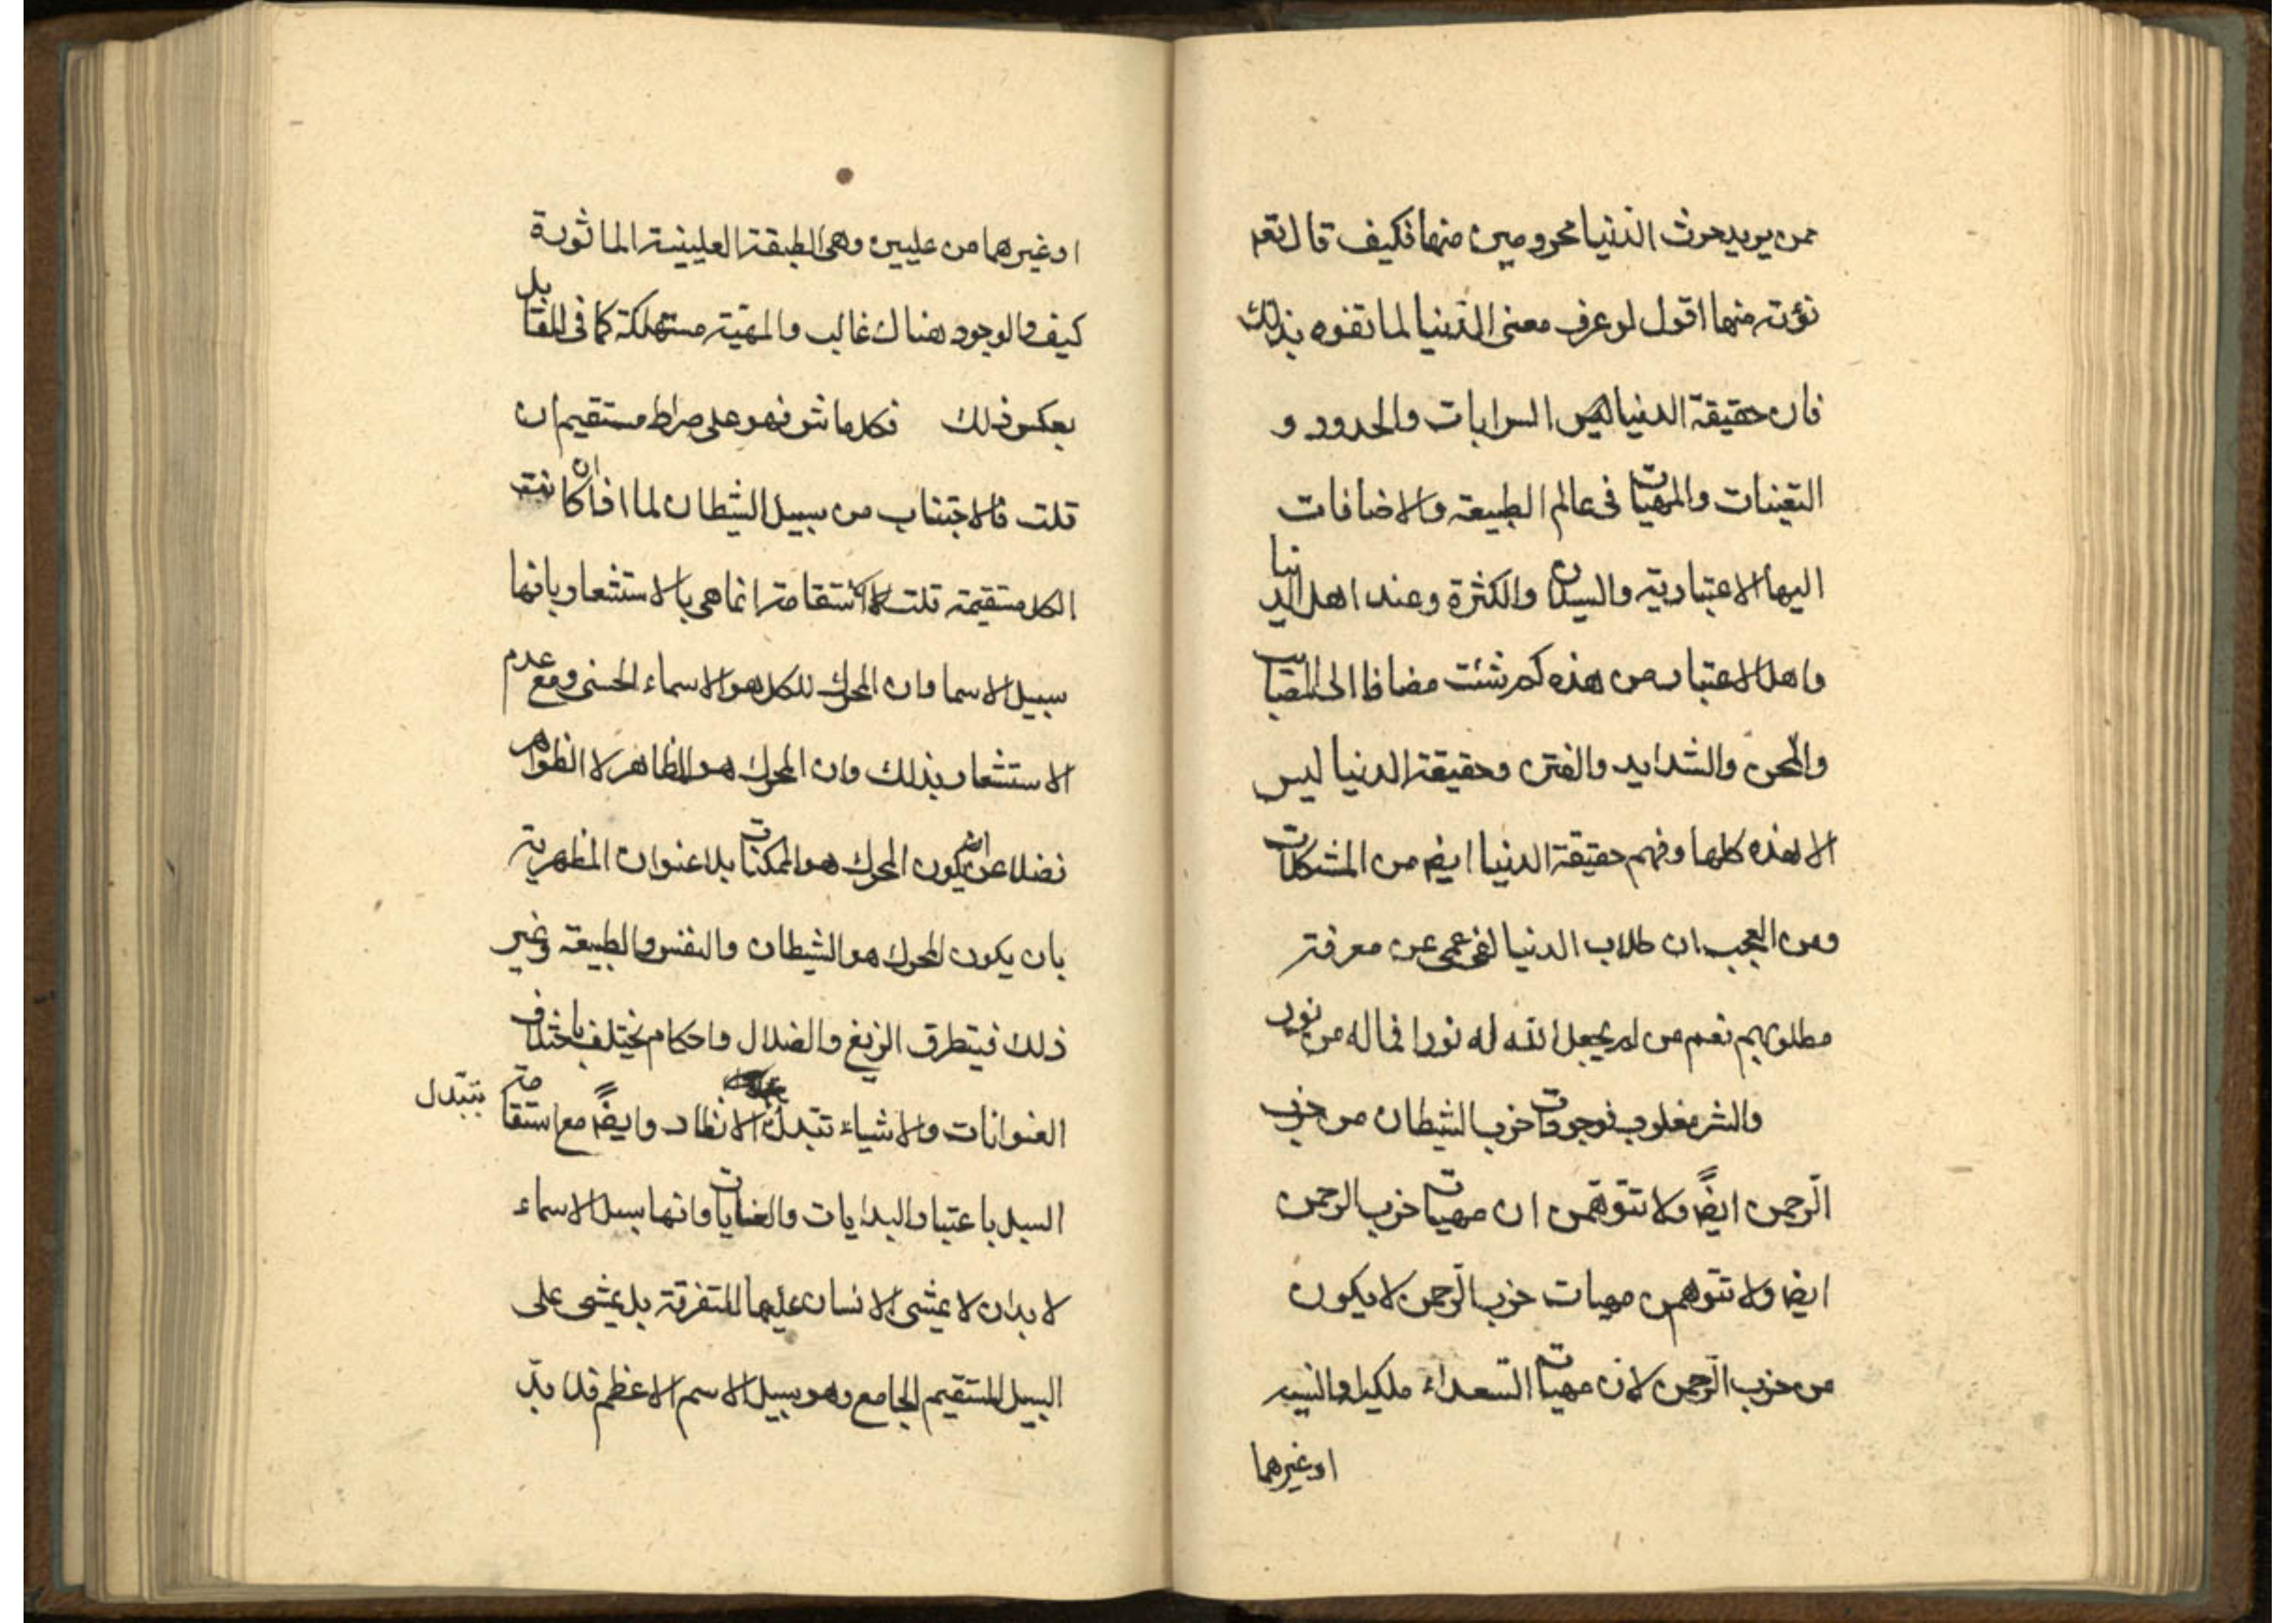 ممن يريد حرث الدنيا محرومين منها فكيف قال تعم
نؤته منها اقول لو عرف معنى الدنيا لما تفوه بذلك
فان حقيقة الدنيا ليس السرابات والحدود و
التعينات والمهيات فى عالم الطبيعة والاضافات
اليها الاعتبارية والسيلان والكثرة وعند اهل الدنيا
واهل الاعتبار من هذه كم شئت مضافا الى المصايب
والمحن والشدايد والفتن وحقيقة الدنيا ليس
الا هذه كلها وفهم حقيقة الدنيا ايضا من المشكلات
ومن العجب ان طلاب الدنيا لفى عمى عن معرفة
مطلوبهم نعم من لم يجعل الله له نورا فما له من نور
والشر مغلوب فوجودات حزب الشيطان من حزب
الرحمن ايضا ولا تتوهمن ان مهيات حزب الرحمن
ايضا ولا تتوهمن مهيات حزب الرحمن لا يكون
من حزب الرحمن لان مهيات السعداء ملكيا
او غيرهما
او غيرهما من عليين وهى الطبقة العليينية الماثورة
كيف والوجود هناك غالب والمهية مستهلكة كما فى المقابل
بعكس ذلك فكل ماش فهو على صراط مستقيم ان
قلت فالاجتناب من سبيل الشيطان لماذا ان كانت
الكل مستقيمة قلت الاستقامة انما هى بالاستشعار بانها
سبيل الاسما وان المحرك للكل هو الاسماء الحسنى ومع عدم
الاستشعار بذلك وان المحرك هو الظاهر لا الظواهر
فضلا عن ان يكون المحرك هو الممكنات بلا عنوان المظهرية
بان يكون المحرك هو الشيطان والنفس والطبيعة وغير
ذلك فيتطرق الزيغ والضلال واحكام يختلف باختلاف
العنوانات والاشياء تتبدل بتبدل الانظار وايضا مع استقامة
السبل باعتبار البدايات والغايات وانها سبل الاسماء
لا بد ان لا يمشى الانسان عليها المتفرقة بل يمشى على
السبيل المستقيم الجامع وهو سبيل الاسم الاعظم فلا بد